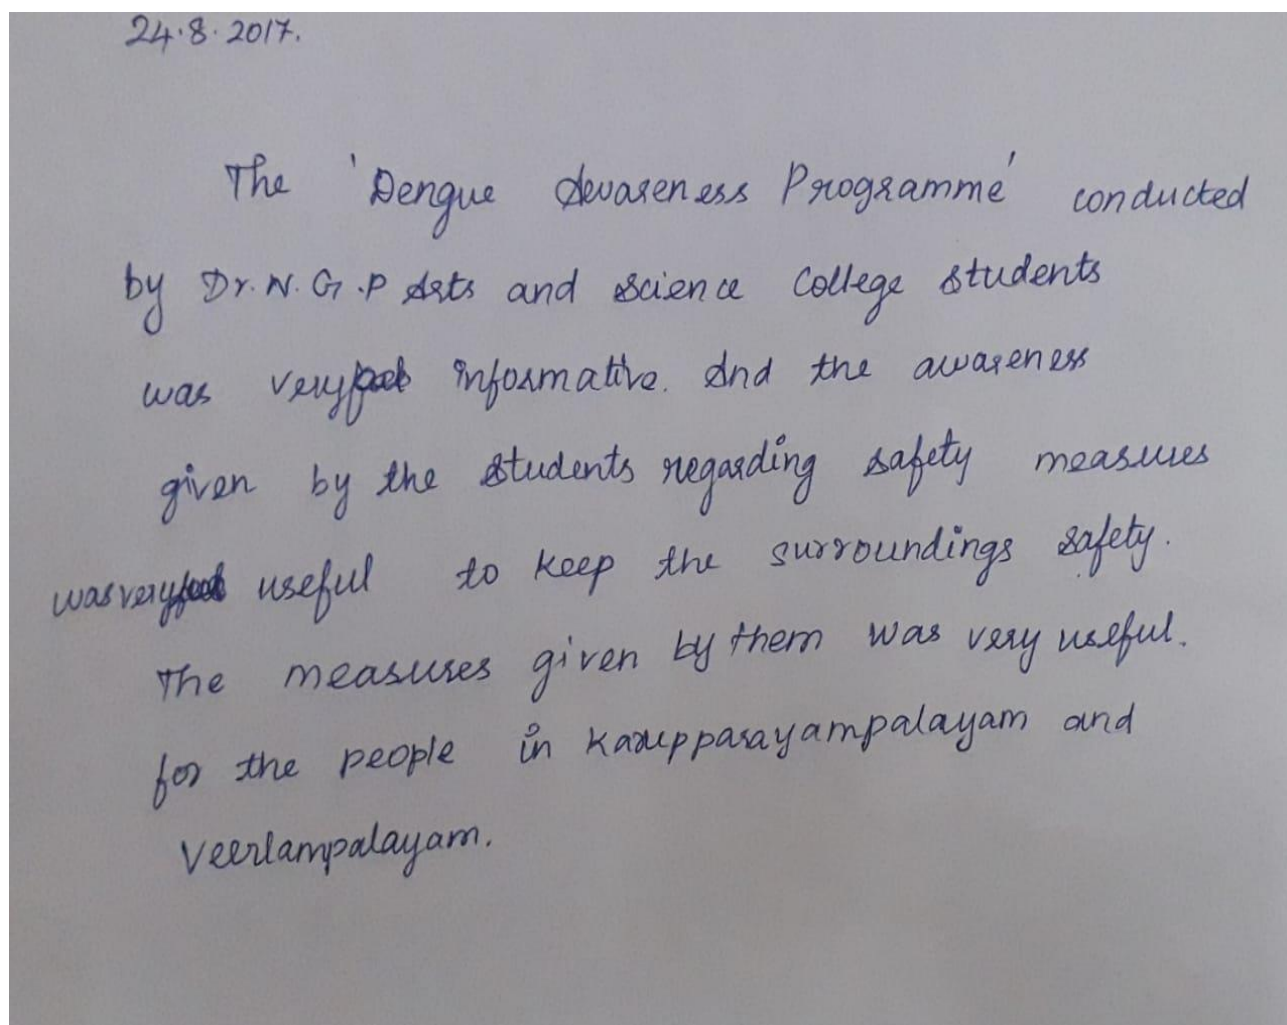 24.8.2017.
The 'Dengue Awareness Programme' conducted
by Dr. N. G. P Arts and Science College Students
was very informative. And the awareness
given by the students regarding safety measures
was very useful to keep the surroundings safety.
The measures given by them was very useful.
for the people in Karupparayampalayam and
Veerlampalayam.